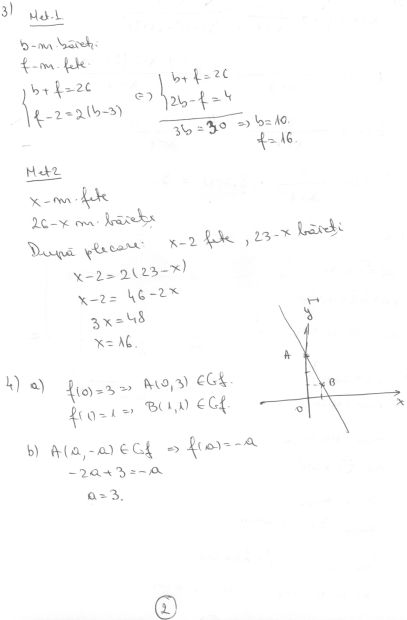 3) Met.1
b - nr. băieți.
f - nr. fete.
{ b + f = 26
f - 2 = 2(b - 3)
<=> { b + f = 26
2b - f = 4
3b = 30 => b = 10.
f = 16.
Met 2
x - nr. fete
26 - x nr. băieți
După plecare: x - 2 fete, 23 - x băieți
x - 2 = 2(23 - x)
x - 2 = 46 - 2x
3x = 48
x = 16.
4) a) f(0) = 3 => A(0,3) ∈ Gf.
f(1) = 1 => B(1,1) ∈ Gf.
y
A
B
O
x
b) A(a, -a) ∈ Gf => f(a) = -a
-2a + 3 = -a
a = 3.
2